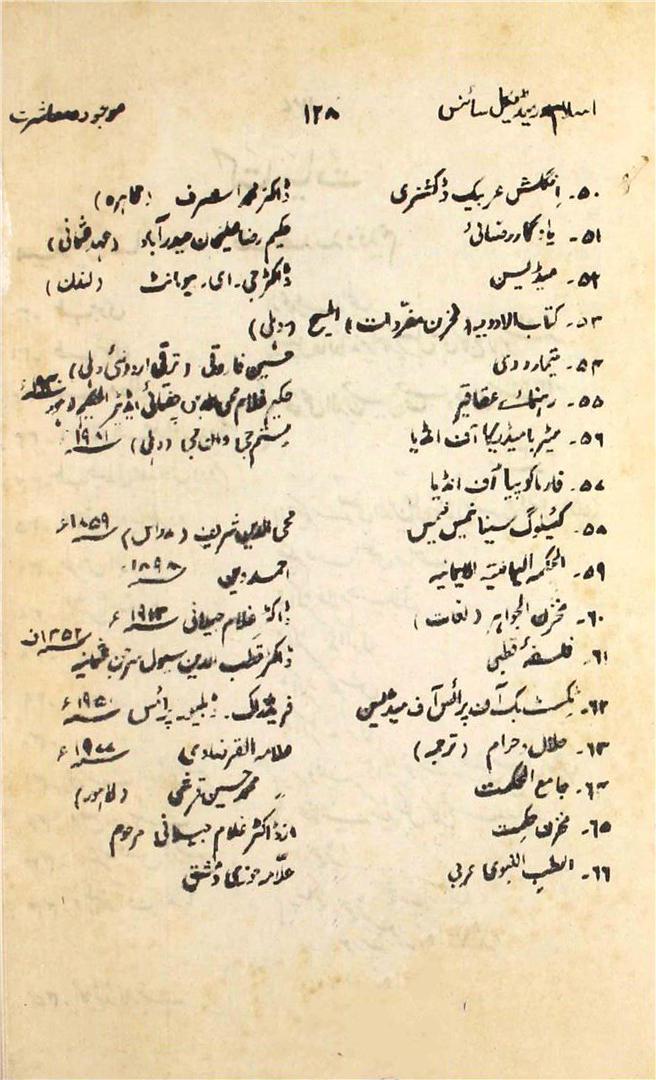 اسلام اور میڈیکل سائنس ۱۲۸ موجودہ معاشرت
۵۰۔ انگلش عربیک ڈکشنری ڈاکٹر محمد اشرف (قاہرہ)
۵۱۔ یادگار رضائی حکیم رضا علیخان حیدرآباد (عہد عثمانی)
۵۲۔ میڈیسن ڈاکٹر جی۔ ای۔ بیومانٹ (لندن)
۵۳۔ کتاب الادویہ (مخزن مفردات) المسیح (دہلی)
۵۴۔ تیمارداری فاروقی (ترقی اردو دہلی)
۵۵۔ رہنمائے عقاقیر حکیم غلام محی الدین چغتائی ایڈیٹر الحکیم لاہور
۵۶۔ میٹریا میڈیکا آف انڈیا رستم جی (دہلی) ۱۹۸۱ء
۵۷۔ فارماکوپیا آف انڈیا
۵۸۔ کٹیلوگ سینا محی الدین شریف (مدراس) ۱۸۵۹ء
۵۹۔ الحکمہ الیمانیہ احمد ۱۸۹۸ء
۶۰۔ مخزن الجواہر (لغات) ڈاکٹر غلام جیلانی ۱۹۲۳ء
۶۱۔ فلسفہ قطبی ڈاکٹر قطب الدین سول سرجن عثمانیہ ۱۳۵۲ف
۶۲۔ ٹکسٹ بک آف پرائس آف میڈیسن فریڈرک۔ ڈبلیو۔ پرائس ۱۹۵۰ء
۶۳۔ حلال و حرام (ترجمہ) علامہ القرضاوی ۱۹۷۷ء
۶۴۔ جامع الحکمت محمد حسین قرشی (لاہور)
۶۵۔ مخزن حکمت از ڈاکٹر غلام جیلانی مرحوم
۶۶۔ الطب النبوی عربی علامہ جوزی دمشق